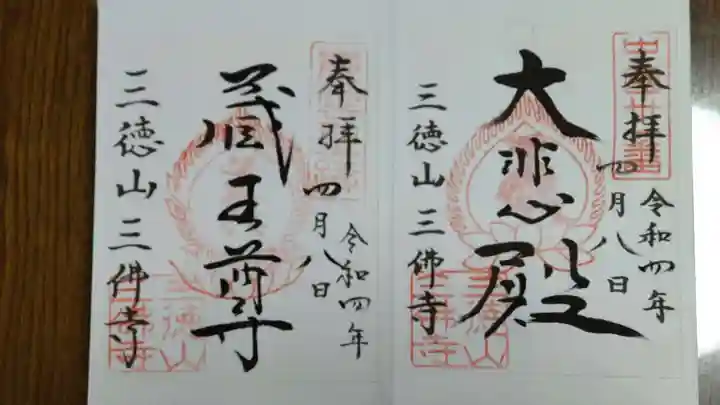 奉拝
令和四年
四月八日
大悲殿
三徳山三佛寺
奉拝
令和四年
四月八日
蔵王尊
三徳山三佛寺
三徳山
三佛寺